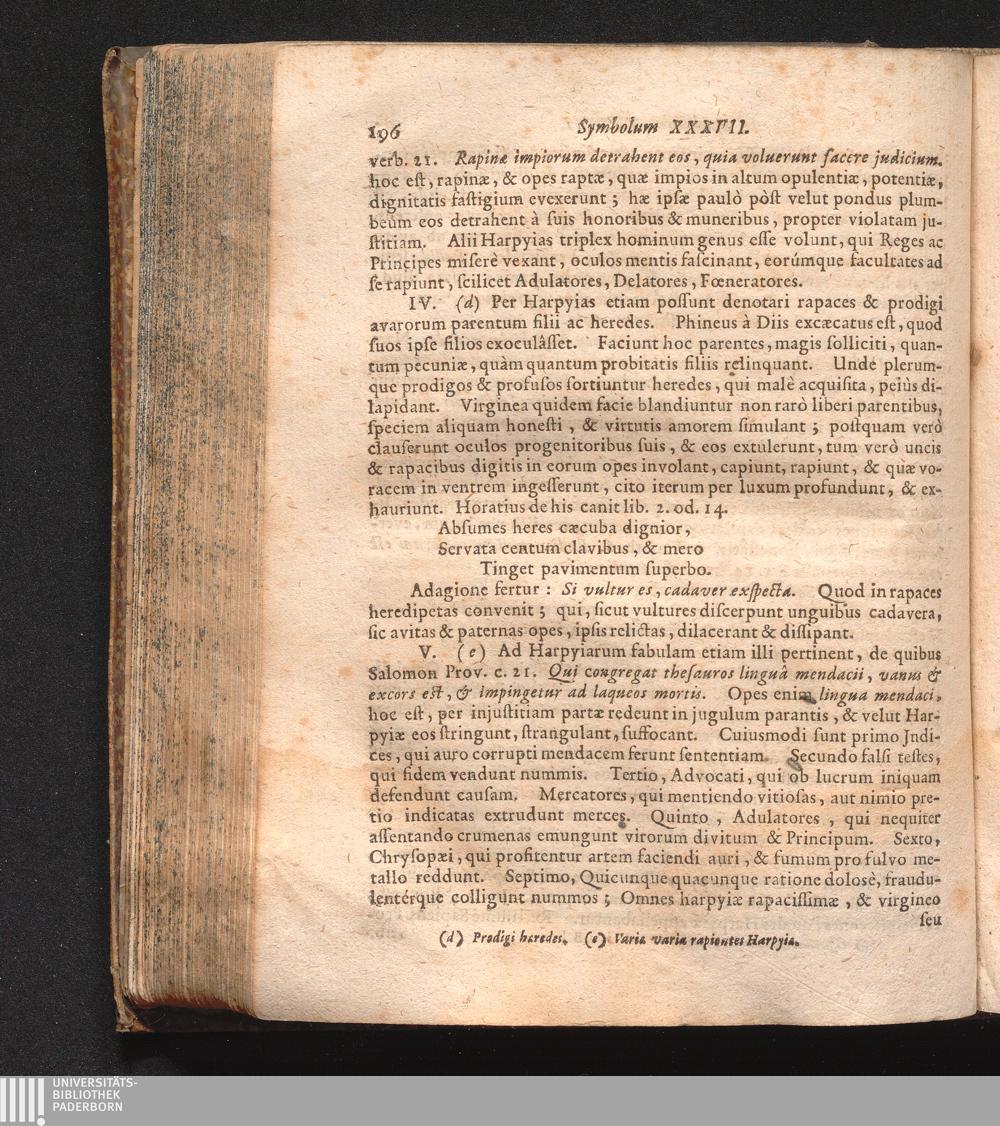 196 Symbolum XXXVII.
verb. 21. Rapinæ impiorum detrahent eos, quia voluerunt facere judicium.
hoc eſt, rapinæ, & opes raptæ, quæ impios in altum opulentiæ, potentiæ,
dignitatis faſtigium evexerunt; hæ ipſæ paulò pòſt velut pondus plum-
beum eos detrahent à ſuis honoribus & muneribus, propter violatam ju-
ſtitiam. Alii Harpyias triplex hominum genus eſſe volunt, qui Reges ac
Principes miſerè vexant, oculos mentis faſcinant, eorúmque facultates ad
ſe rapiunt, ſcilicet Adulatores, Delatores, Fœneratores.
IV. (d) Per Harpyias etiam poſſunt denotari rapaces & prodigi
avarorum parentum filii ac heredes. Phineus à Diis excæcatus eſt, quod
ſuos ipſe filios exoculâſſet. Faciunt hoc parentes, magis ſolliciti, quan-
tum pecuniæ, quàm quantum probitatis filiis relinquant. Unde plerum-
que prodigos & profuſos ſortiuntur heredes, qui malè acquiſita, peiùs di-
lapidant. Virginea quidem facie blandiuntur non rarò liberi parentibus,
ſpeciem aliquam honeſti, & virtutis amorem ſimulant; poſtquam verò
clauſerunt oculos progenitoribus ſuis, & eos extulerunt, tum verò uncis
& rapacibus digitis in eorum opes involant, capiunt, rapiunt, & quæ vo-
racem in ventrem ingeſſerunt, cito iterum per luxum profundunt, & ex-
hauriunt. Horatius de his canit lib. 2. od. 14.
Abſumes heres cæcuba dignior,
Servata centum clavibus, & mero
Tinget pavimentum ſuperbo.
Adagione fertur: Si vultur es, cadaver exſpecta. Quod in rapaces
heredipetas convenit; qui, ſicut vultures diſcerpunt unguibus cadavera,
ſic avitas & paternas opes, ipſis relictas, dilacerant & diſſipant.
V. (e) Ad Harpyiarum fabulam etiam illi pertinent, de quibus
Salomon Prov. c. 21. Qui congregat theſauros linguâ mendacii, vanus &
excors eſt, & impingetur ad laqueos mortis. Opes enim lingua mendaci,
hoc eſt, per injuſtitiam partæ redeunt in jugulum parantis, & velut Har-
pyiæ eos ſtringunt, ſtrangulant, ſuffocant. Cuiusmodi ſunt primo Judi-
ces, qui auro corrupti mendacem ferunt ſententiam. Secundo falſi teſtes,
qui fidem vendunt nummis. Tertio, Advocati, qui ob lucrum iniquam
defendunt cauſam. Mercatores, qui mentiendo vitioſas, aut nimio pre-
tio indicatas extrudunt merces. Quinto, Adulatores, qui nequiter
aſſentando crumenas emungunt virorum divitum & Principum. Sexto,
Chryſopæi, qui profitentur artem faciendi auri, & fumum pro fulvo me-
tallo reddunt. Septimo, Quicunque quacunque ratione dolosè, fraudu-
lentérque colligunt nummos; Omnes harpyiæ rapaciſſimæ, & virgineo
ſeu
(d) Prodigi heredes. (e) Variæ varia rapientes Harpyiæ.
UNIVERSITÄTS-
BIBLIOTHEK
PADERBORN